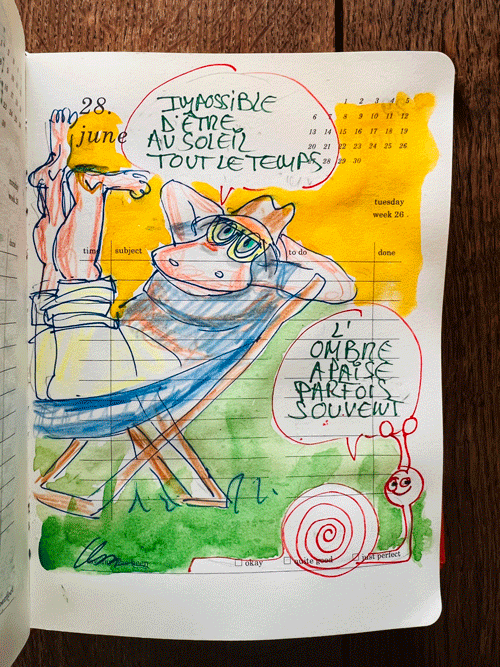 28.
june
IMPOSSIBLE
D'ÊTRE
AU SOLEIL
TOUT LE TEMPS
1 2 3 4 5
6 7 8 9 10 11 12
13 14 15 16 17 18 19
20 21 22 23 24 25 26
27 28 29 30
tuesday
week 26 .
time subject to do done
L'
OMBRE
APAISE
PARFOIS
SOUVENT
okay quite good just perfect